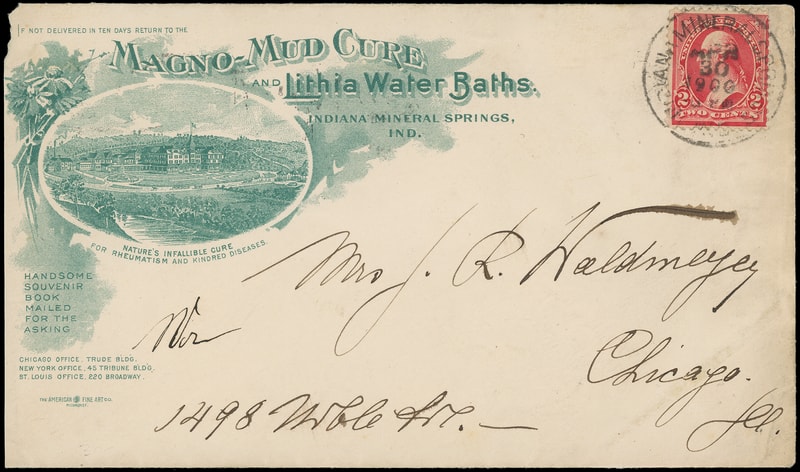 IF NOT DELIVERED IN TEN DAYS RETURN TO THE
MAGNO-MUD CURE
AND Lithia Water Baths.
INDIANA MINERAL SPRINGS,
IND.
NATURE'S INFALLIBLE CURE
FOR RHEUMATISM AND KINDRED DISEASES.
HANDSOME
SOUVENIR
BOOK
MAILED
FOR THE
ASKING
CHICAGO OFFICE, TRUDE BLDG.
NEW YORK OFFICE, 45 TRIBUNE BLDG.
ST. LOUIS OFFICE, 220 BROADWAY.
THE AMERICAN FINE ART CO.
30
1900
2 2
TWO CENTS
Mrs J. R. Waldmeyer
1498 Noble Ave.
Chicago.
Ill.